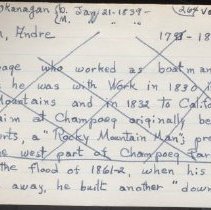 Okanagan (b. Jan 21-1839-
(M.
, Andre 17
age who worked as boatman
he was with Work in 1830 i
Mountains and in 1832 to Califo
aim at Champoeg originally be
nts, a "Rocky Mountain Man", pr
he west part at Champoeg Par
the flood of 1861-2, when his
away, he built another "down